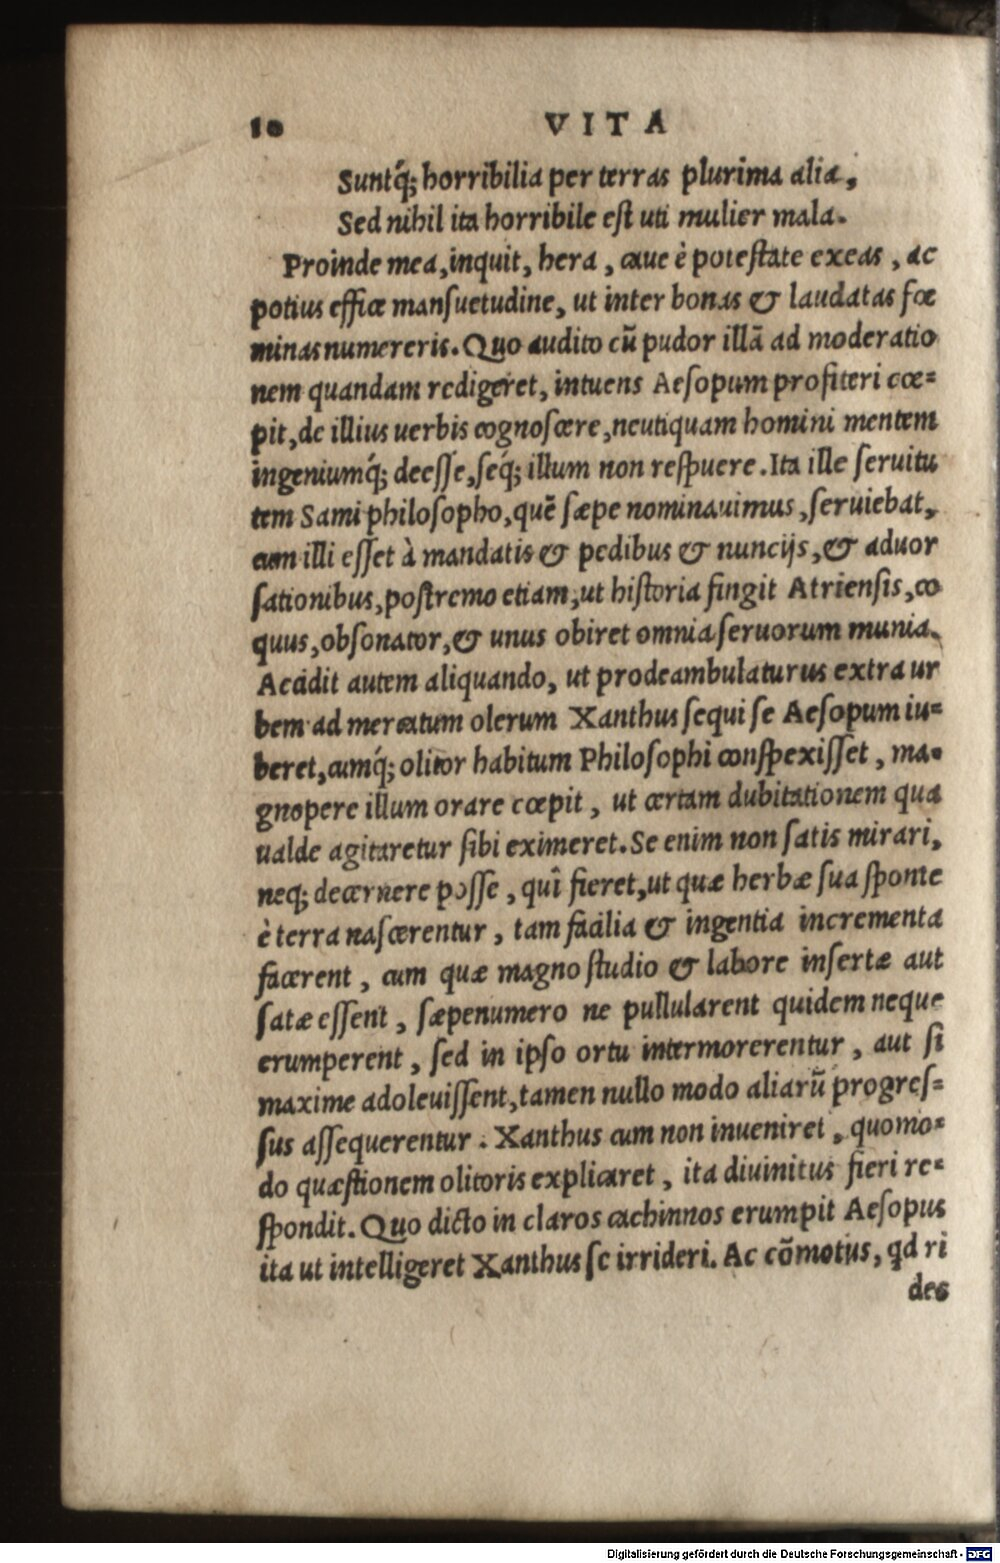 10 VITA
Suntq́; horribilia per terras plurima alia,
Sed nihil ita horribile est uti mulier mala.
Proinde mea, inquit, hera, caue è potestate exeas, ac
potius effice mansuetudine, ut inter bonas & laudatas fœ
minas numereris. Quo audito cũ pudor illã ad moderatio
nem quandam redigeret, intuens Aesopum profiteri cœ=
pit, de illius uerbis cognoscere, neutiquam homini mentem
ingeniumq́; deesse, seq́; illum non respuere. Ita ille seruitu
tem Sami philosopho, quẽ sæpe nominauimus, seruiebat,
cum illi esset à mandatis & pedibus & nuncijs, & aduor
sationibus, postremo etiam, ut historia fingit Atriensis, co
quus, obsonator, & unus obiret omnia seruorum munia.
Accidit autem aliquando, ut prodeambulaturus extra ur
bem ad mercatum olerum Xanthus sequi se Aesopum iu=
beret, cumq́; olitor habitum Philosophi conspexisset, ma=
gnopere illum orare cœpit, ut certam dubitationem qua
ualde agitaretur sibi eximeret. Se enim non satis mirari,
neq; decernere posse, quî fieret, ut quæ herbæ sua sponte
è terra nascerentur, tam facilia & ingentia incrementa
facerent, cum quæ magno studio & labore insertæ aut
satæ essent, sæpenumero ne pullularent quidem neque
erumperent, sed in ipso ortu intermorerentur, aut si
maxime adoleuissent, tamen nullo modo aliarũ progres=
sus assequerentur. Xanthus cum non inueniret, quomo=
do quæstionem olitoris explicaret, ita diuinitus fieri re=
spondit. Quo dicto in claros cachinnos erumpit Aesopus
ita ut intelligeret Xanthus se irrideri. Ac cõmotus, qd ri
des
Digitalisierung gefördert durch die Deutsche Forschungsgemeinschaft - DFG